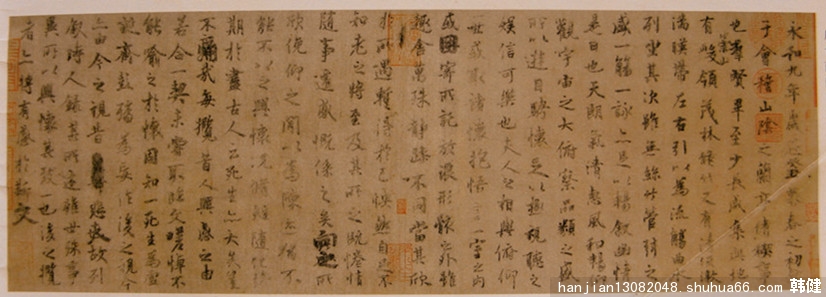 永和九年歲在癸丑暮春之初會
于會稽山陰之蘭亭脩禊事
也羣賢畢至少長咸集此地
有崇山峻領茂林脩竹又有清流激
湍暎帶左右引以為流觴曲水
列坐其次雖無絲竹管弦之
盛一觴一詠亦足以暢叙幽情
是日也天朗氣清惠風和暢仰
觀宇宙之大俯察品類之盛
所以遊目騁懷足以極視聽之
娛信可樂也夫人之相與俯仰
一世或取諸懷抱悟言一室之內
或因寄所託放浪形骸之外雖
趣舍萬殊靜躁不同當其欣
於所遇暫得於己怏然自足不
知老之將至及其所之既惓情
隨事遷感慨係之矣向之所
欣俛仰之閒以為陳迹猶不
能不以之興懷況脩短隨化終
期於盡古人云死生亦大矣豈
不痛哉每攬昔人興感之由
若合一契未嘗不臨文嗟悼不
能喻之於懷固知一死生為虛
誕齊彭殤為妄作後之視今
亦由今之視昔悲夫故列
叙時人錄其所述雖世殊事
異所以興懷其致一也後之攬
者亦將有感於斯文
hanjian13082048, shuhua66.com 韩健